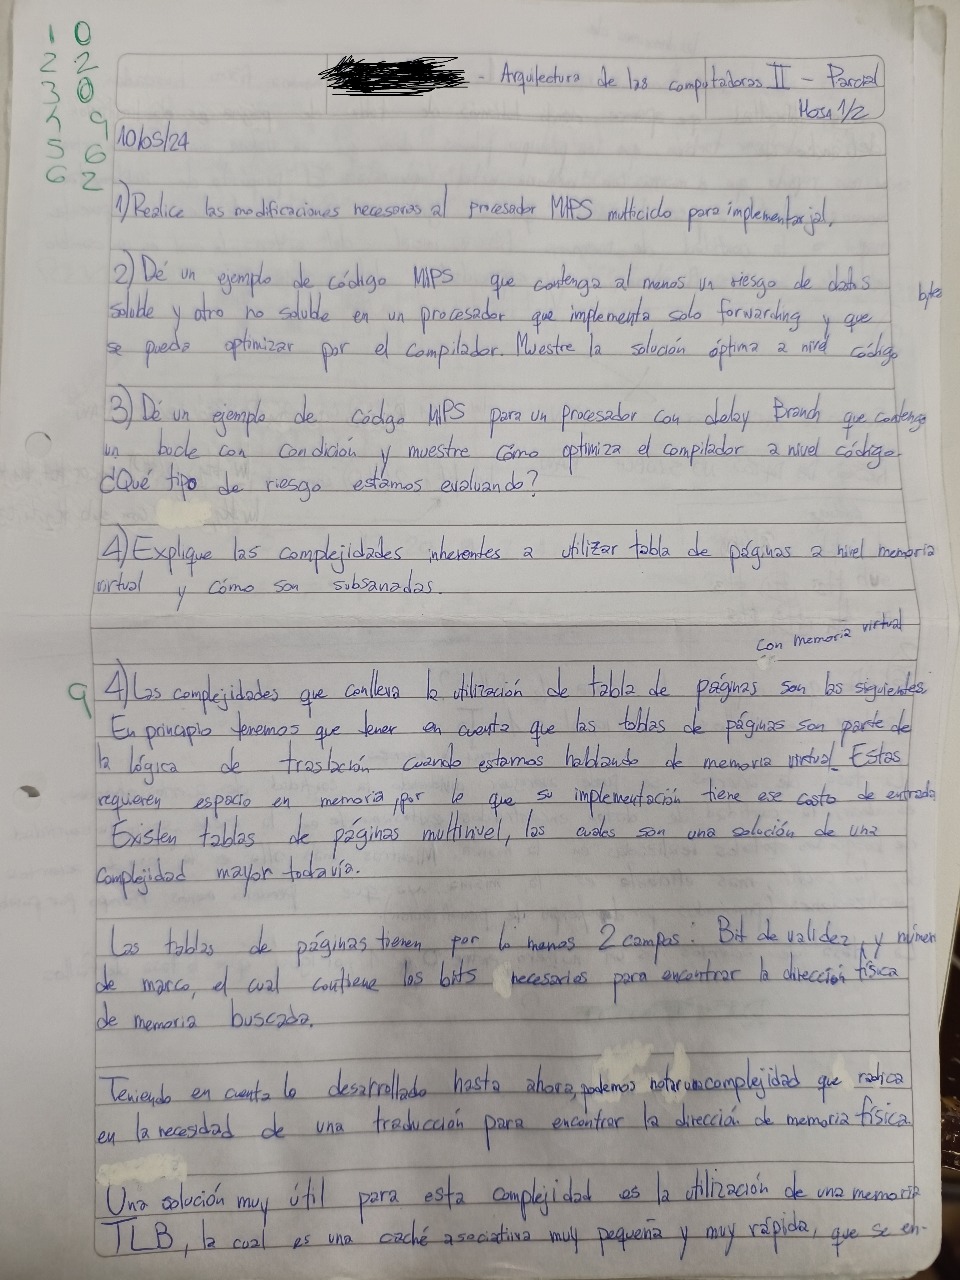 1 0
2 2
3 0
4 9
5 6
6 2
- Arquitectura de las computadoras II - Parcial
Hoja 1/2
10/05/24
1) Realice las modificaciones necesarias al procesador MIPS multiciclo para implementar jal.
2) Dé un ejemplo de código MIPS que contenga al menos un riesgo de datos
soluble y otro no soluble en un procesador que implementa solo forwarding y que
se pueda optimizar por el compilador. Muestre la solución óptima a nivel código
3) Dé un ejemplo de código MIPS para un procesador con delay Branch que contenga
un bucle con condición y muestre cómo optimiza el compilador a nivel código.
¿Qué tipo de riesgo estamos evaluando?
4) Explique las complejidades inherentes a utilizar tabla de páginas a nivel memoria
virtual y cómo son subsanadas.
con memoria virtual
9 4) Las complejidades que conlleva la utilización de tabla de páginas son las siguientes.
En principio tenemos que tener en cuenta que las tablas de páginas son parte de
la lógica de traslación cuando estamos hablando de memoria virtual. Estas
requieren espacio en memoria, por lo que su implementación tiene ese costo de entrada
Existen tablas de páginas multinivel, las cuales son una solución de una
complejidad mayor todavía.
Las tablas de páginas tienen por lo menos 2 campos: Bit de validez, y número
de marco, el cual contiene los bits necesarios para encontrar la dirección física
de memoria buscada.
Teniendo en cuenta lo desarrollado hasta ahora, podemos notar una complejidad que radica
en la necesidad de una traducción para encontrar la dirección de memoria física.
Una solución muy útil para esta complejidad es la utilización de una memoria
TLB, la cual es una caché asociativa muy pequeña y muy rápida, que se en-